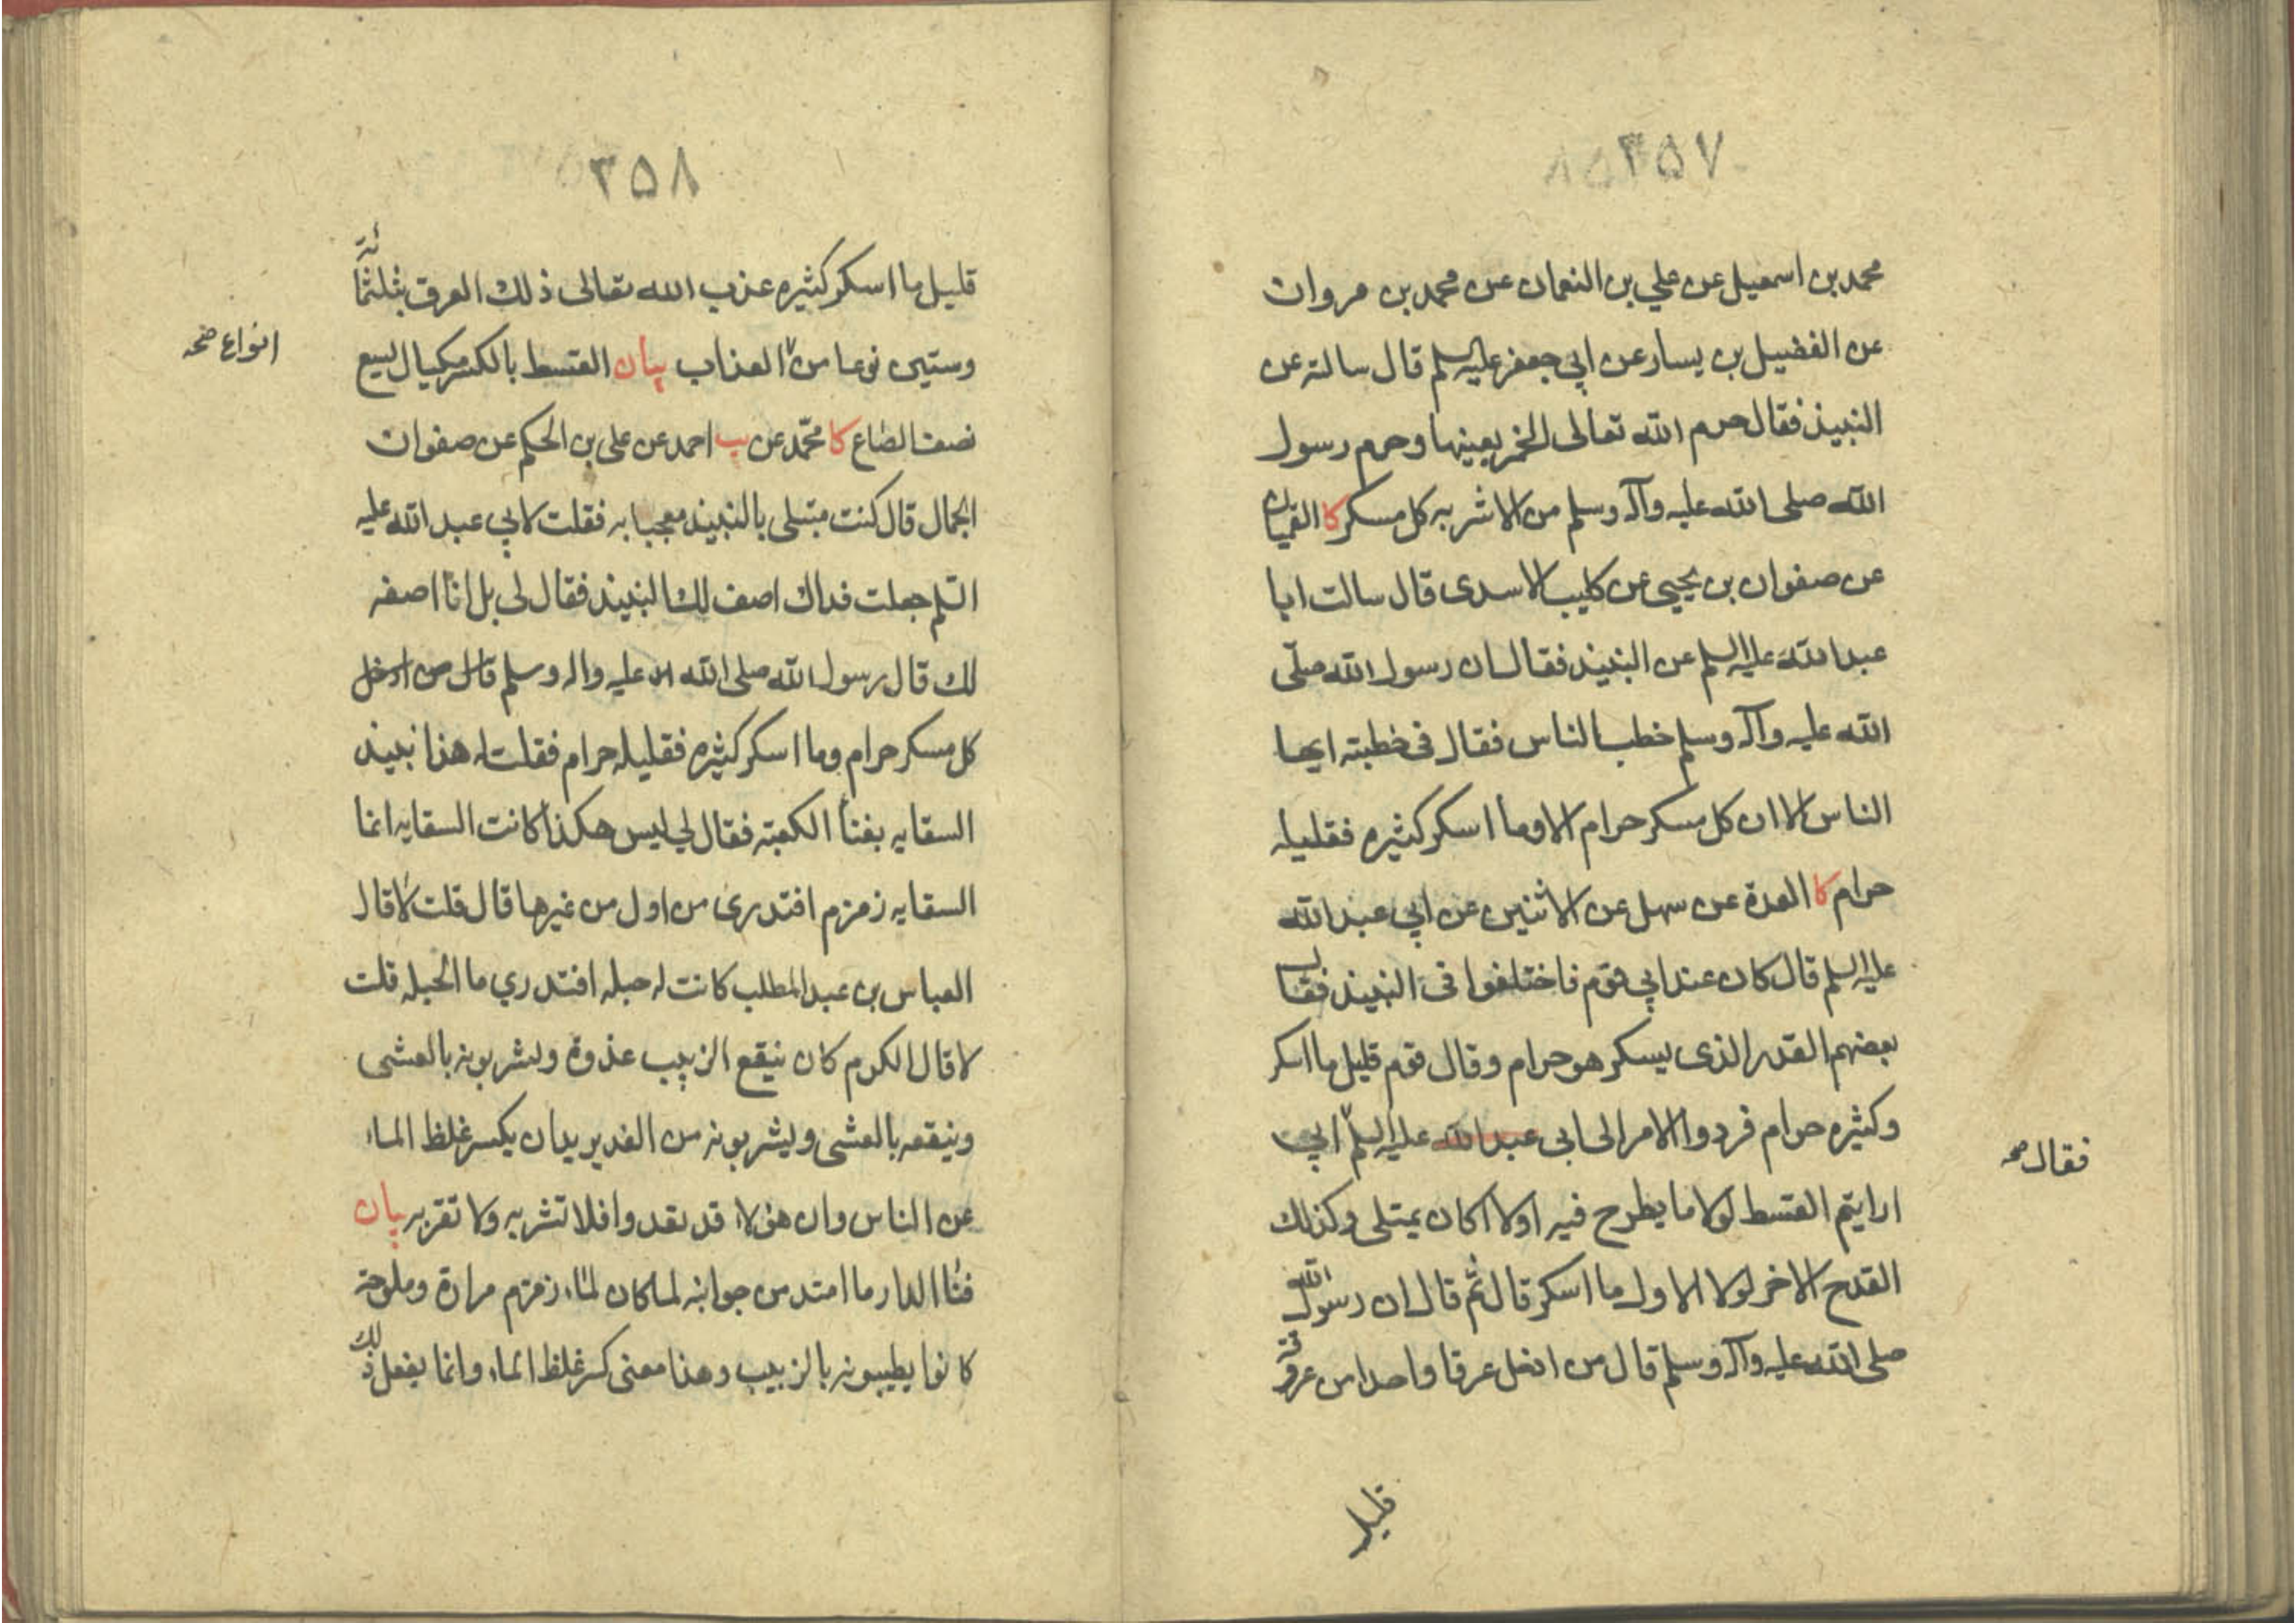 ٣٥٧
محمد بن اسمعيل عن علي بن النعمان عن محمد بن مروان
عن الفضيل بن يسار عن ابي جعفر عليه السلم قال سالته عن
النبيذ فقال حرم الله تعالى الخمر بعينها وحرم رسول
الله صلى الله عليه وآله وسلم من الاشربه كل مسكر كا القميان
عن صفوان بن يحيى عن كليب الاسدى قال سالت ابا
عبد الله عليه السلم عن النبيذ فقال ان رسول الله صلّى
الله عليه وآله وسلم خطب الناس فقال فى خطبته ايها
الناس الا ان كل مسكر حرام الا وما اسكر كثيره فقليله
حرام كا العدة عن سهل عن الاثنين عن ابي عبد الله
عليه السلم قال كان عند ابي قوم فاختلفوا فى النبيذ فقال
بعضهم القدر الذى يسكر هو حرام وقال قوم قليل ما اسكر
وكثيره حرام فردوا الامر الى ابى عبد الله عليه السلم ابي
فقال صح
ارايتم القسط لولا ما يطرح فيه اولا اكان يمتلى وكذلك
القدح الاخر لولا الاول ما اسكر قال ثم قال ان رسول الله
صلى الله عليه وآله وسلم قال من ادخل عرقا واحدا من عروقه
قليل
٣٥٨
قليل ما اسكر كثيره عذب الله تعالى ذلك العرق بثلثمائة
وستين نوعا من العذاب بيان القسط بالكسر مكيال ليسع
انواع صح
نصف الصّاع كا محمّد عن يب احمد عن على بن الحكم عن صفوان
الجمال قال كنت مبتلى بالنبيذ معجبا به فقلت لابي عبد الله عليه
السّلم جعلت فداك اصف لك النبيذ فقال لى بل انا اصفه
لك قال رسول الله صلى الله عليه واله وسلم قال من ادخل
كل مسكر حرام وما اسكر كثيره فقليله حرام فقلت له هذا نبيذ
السقايه بفنأ الكعبته فقال لي ليس هكذا كانت السقايه انما
السقايه زمزم افتدرى من اول من غيرها قال قلت لا قال
العباس بن عبد المطلب كانت له حبله افتدري ما الحبله قلت
لا قال الكرم كان ينقع الزبيب غدوة ويشربونه بالعشى
وينقعه بالعشى ويشربونه من الغد يريد ان يكسر غلظ الماء
عن الناس وان هؤلاء قد تعدوا فلا تشربه ولا تقربه بيان
فنأ الدار ما امتد من جوانبه لما كان لماء زمزم مرارة وملوحة
كانوا يطيبونه بالزبيب وهذا معنى كسر غلظ الماء وانما يفعل ذلك